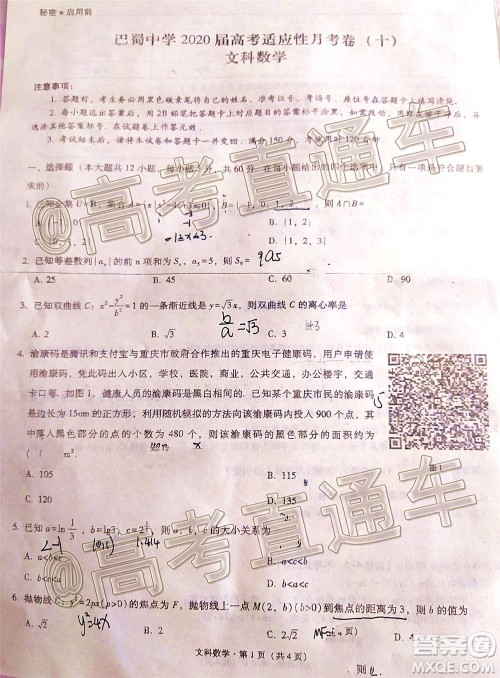 秘密★启用前
巴蜀中学 2020 届高考适应性月考卷(十)
文科数学
注意事项:
1. 答题前,考生务必用黑色碳素笔将自己的姓名、准考证号、考场号、座位号在答题卡上填写清楚。
2. 每小题选出答案后,用 2B 铅笔把答题卡上对应题目的答案标号涂黑。如需改动,用橡皮擦干净后,再
选涂其他答案标号。在试题卷上作答无效。
3. 考试结束后,请将本试卷和答题卡一并交回。满分 150 分,考试用时 120 分钟。
一、选择题(本大题共 12 小题,每小题 5 分,共 60 分。在每小题给出的四个选项中,只有一项是符合题目要
求的)
A∩B=
B. {1, 2}
D. {1, 2, 3}
-1≤x≤3
2. 已知等差数列{aₙ}的前 n 项和为Sₙ,a₅=5,则 S₉=
9a5
A. 25
B. 45
C. 60
D. 90
3. 已知双曲线 C:x²-y²/b²=1 的一条渐近线是 y=√3x,则双曲线 C 的离心率是
b/a=√3
1+3
A. 2
B. √3
C. 3
D. 4
4. 渝康码是腾讯和支付宝与重庆市政府合作推出的重庆电子健康码,用户申请使
用渝康码,凭此码出入小区、学校、医院、商业、公共交通、办公楼宇、交通
卡口等. 如图 1,健康人员的渝康码是黑白相间的. 已知某个重庆市民的渝康码
是边长为15cm 的正方形,利用随机模拟的方法向该渝康码内投入 900 个点,其
中落入黑色部分的点的个数为 480 个,则该渝康码的黑色部分的面积约为
15
图 1
A. 105
B. 115
C. 120
D. 135
5. 已知 a=ln 1/3,b=lg3,c=2^½,则 a,b,c 的大小关系为
<-1
1.414
A. a<b<c
6. 抛物线 C:y²=2px(p>0)的焦点为 F,抛物线上一点 M(2, b)(b>0)到焦点的距离为 3,则 b=
A. √2
y²=4x
B. 2
C. 2√2
D. 4
文科数学·第 1 页(共 4 页)
@高考直通车
@高考直通车
@高考直通车
答案圈